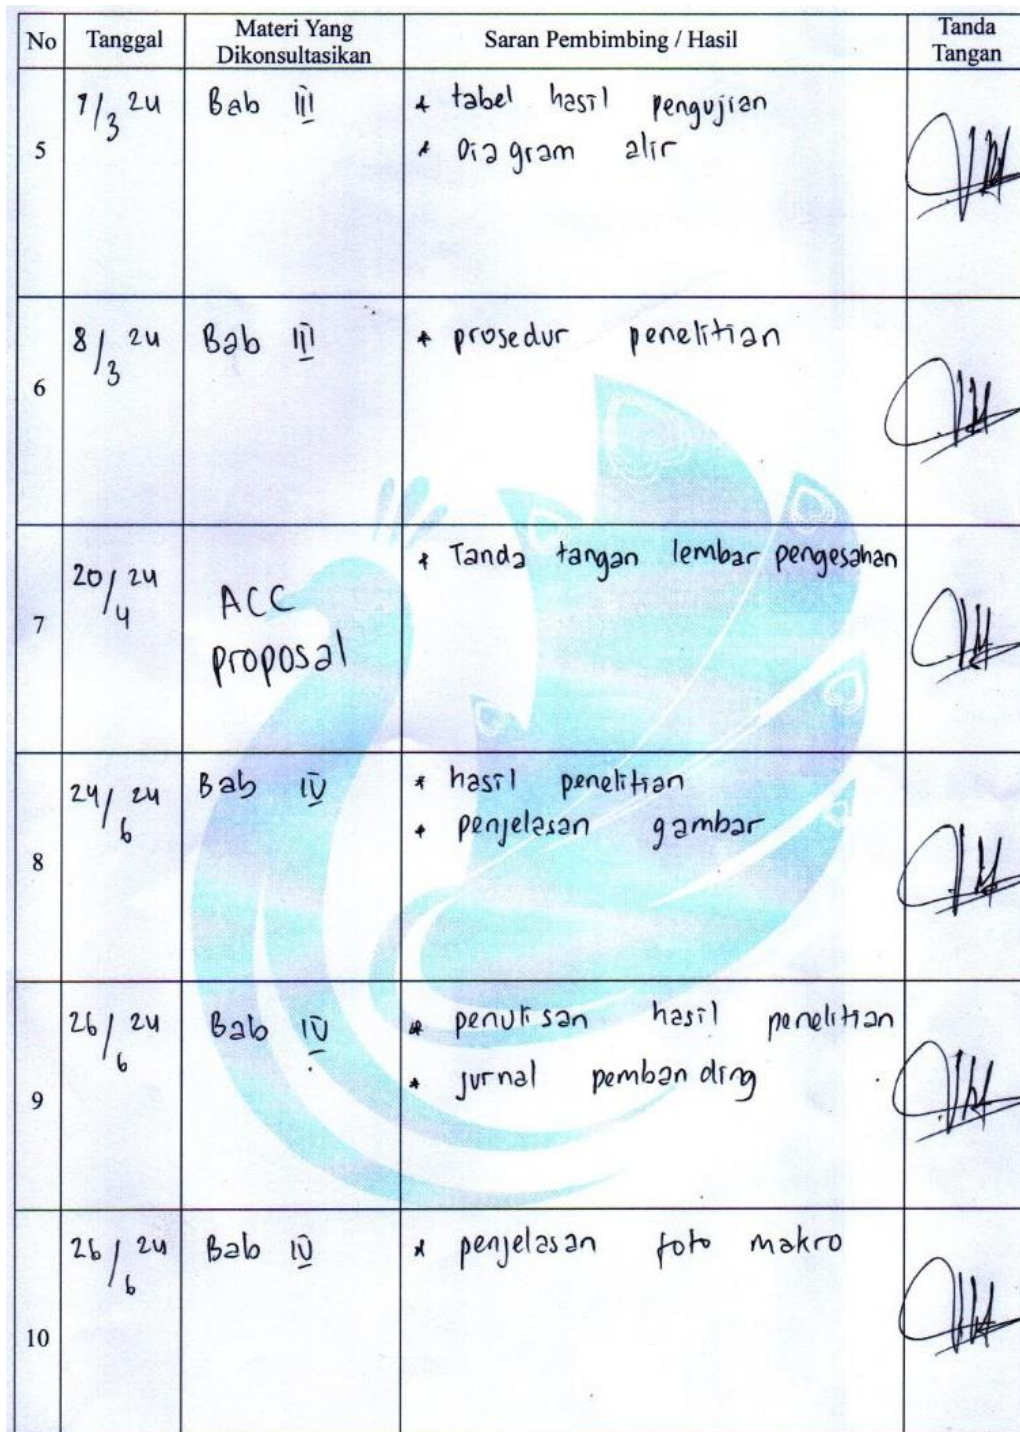 No Tanggal Materi Yang Dikonsultasikan Saran Pembimbing / Hasil Tanda Tangan
5 7/3 24 Bab III * tabel hasil pengujian
* Diagram alir
6 8/3 24 Bab III * prosedur penelitian
7 20/4 24 ACC proposal * Tanda tangan lembar pengesahan
8 24/6 24 Bab IV * hasil penelitian
* penjelasan gambar
9 26/6 24 Bab IV * penulisan hasil penelitian
* jurnal pembanding
10 26/6 24 Bab IV * penjelasan foto makro